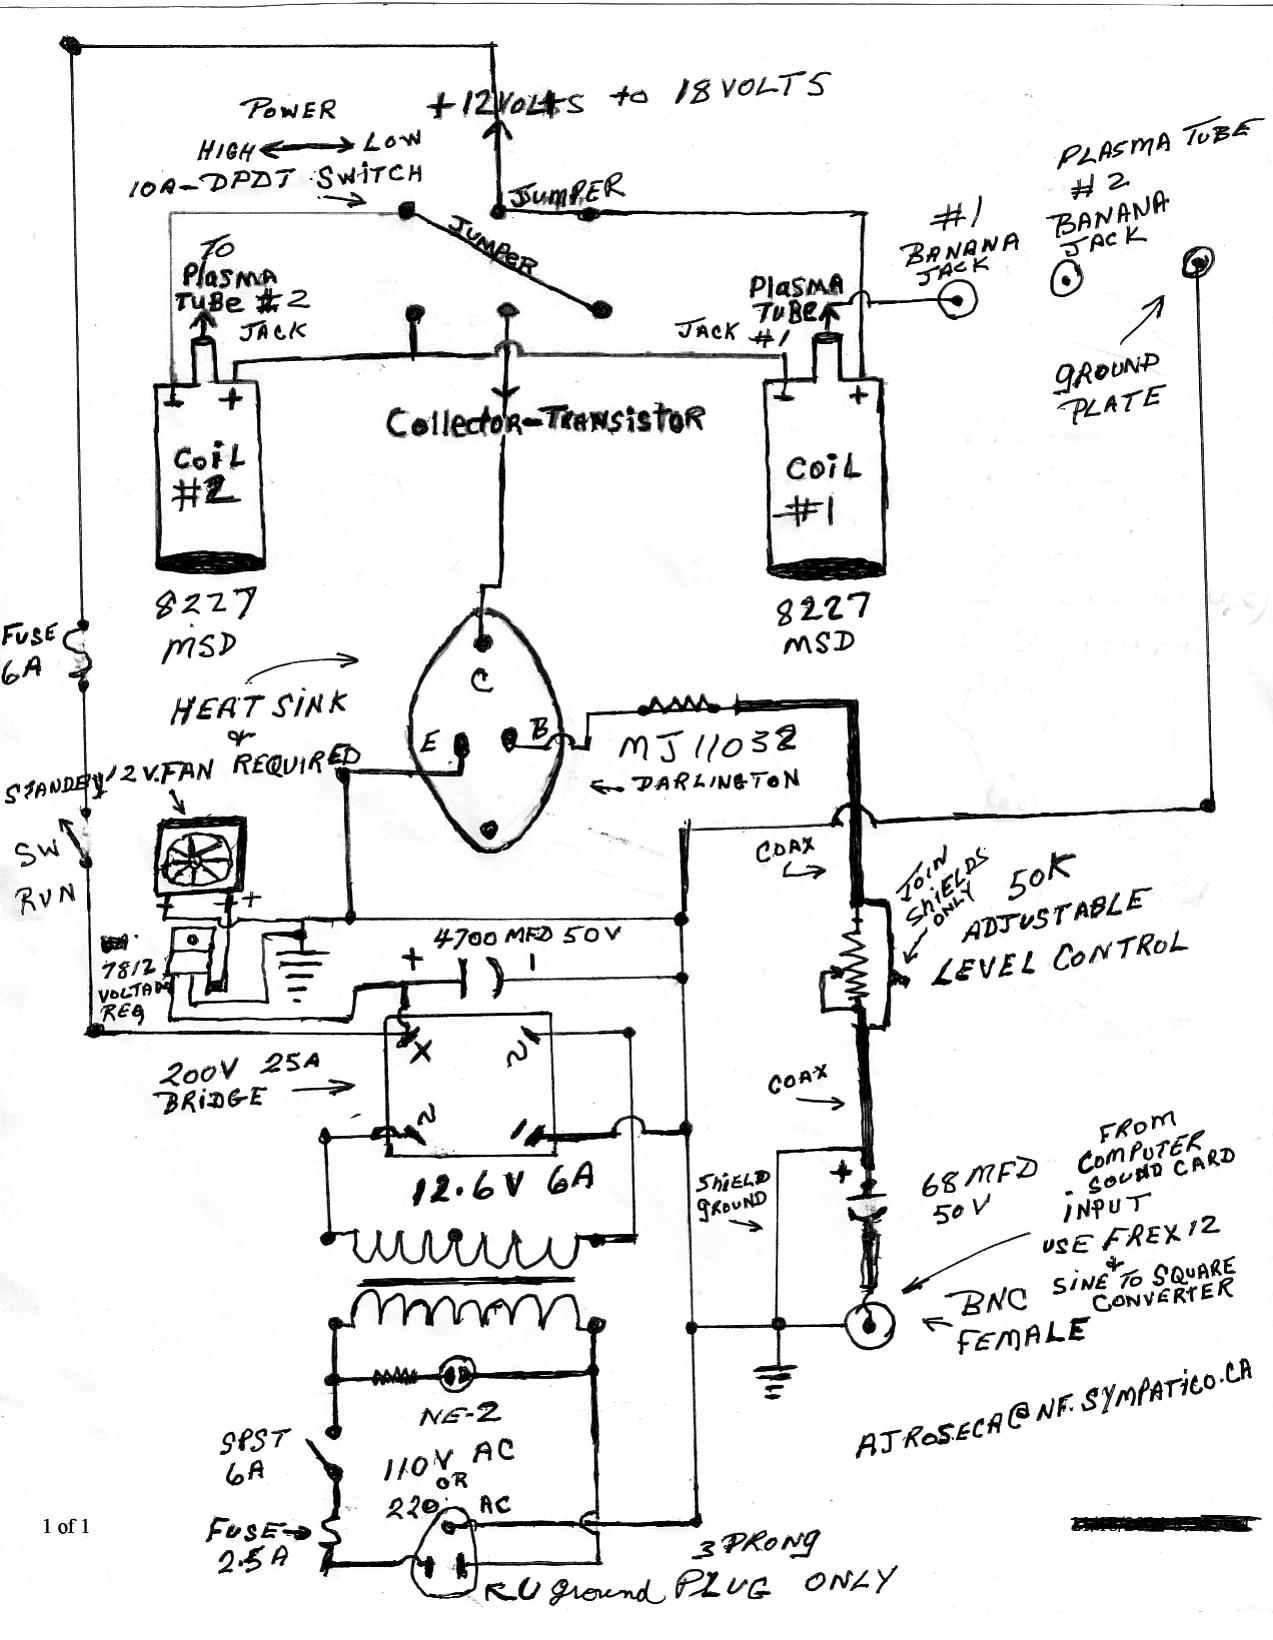 +12VOLTS to 18 VOLTS
POWER
HIGH LOW
10A-DPDT SWITCH
JUMPER
JUMPER
PLASMA TUBE
#2
BANANA
JACK
#1
BANANA
JACK
TO
PlASMA
TUBE #2
JACK
PlASMA
TUBE
JACK #1
GROUND
PLATE
Collector-TRANSISTOR
+
COiL
#2
8227
MSD
+
COiL
#1
8227
MSD
FUSE
6A
HEAT SiNK
&
12V.FAN REQUIRED
STANDBY
SW
RUN
C
E
B
MJ11032
DARLINGTON
COAX
JOIN
SHIELDS
ONLY
50K
ADJUSTABLE
LEVEL CONTROL
- +
7812
VOLTAGE
REG
4700 MFD 50V
+
200V 25A
BRIDGE
12.6V 6A
COAX
SHIELD
GROUND
+
68 MFD
50V
FROM
COMPUTER
SOUND CARD
INPUT
USE FREX12
&
SINE TO SQUARE
CONVERTER
BNC
FEMALE
AJROSECA@NF.SYMPATICO.CA
NE-2
SPST
6A
110V AC
OR
220 AC
FUSE
2.5A
1 of 1
3 PRONG
RU ground PLUG ONLY